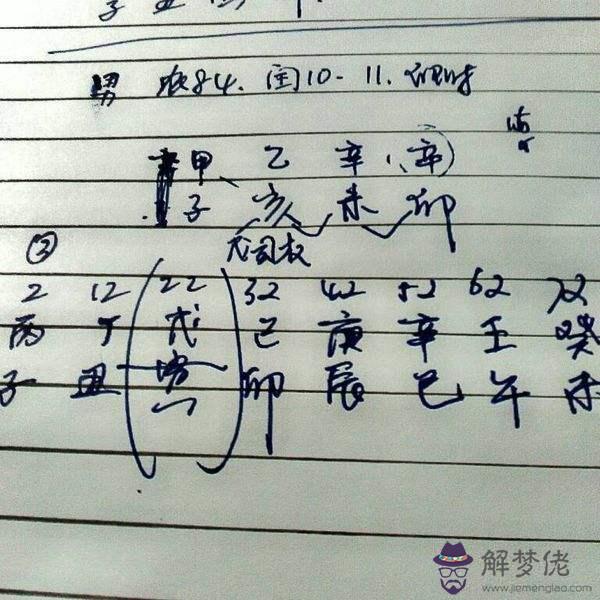 男 农84.闰10-11.卯时
甲、乙 辛、(辛)
子 亥 未 卯
戊司权
②
2 12 (22) 32 42 52 62 72
丙 丁 戊 己 庚 辛 壬 癸
子 丑 寅 卯 辰 巳 午 未
解梦佬
www.jiemenglao.com